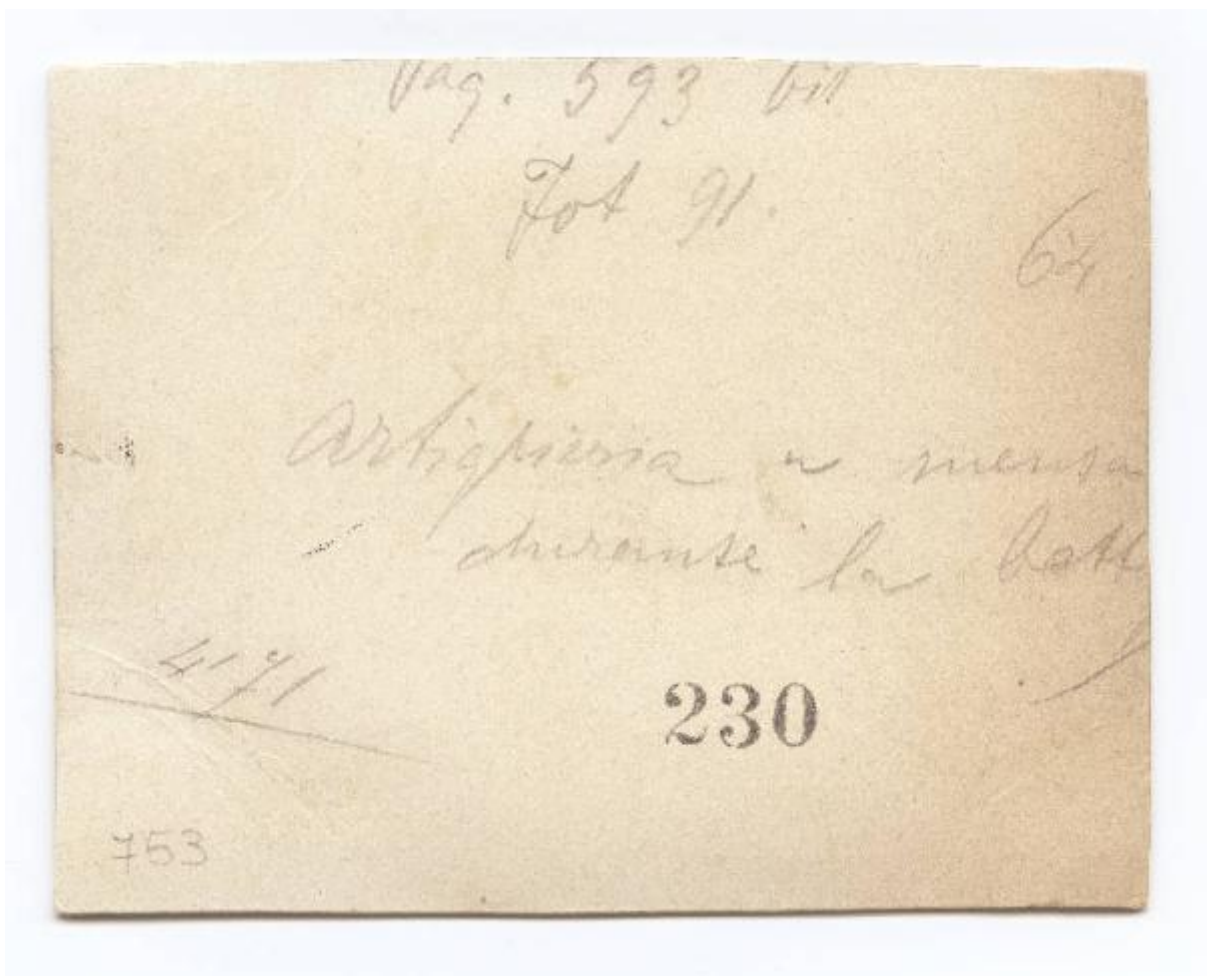 Pag. 593 bis
Fot 91.
64
Artiglieria a mensa
durante la batt
4171
230
753